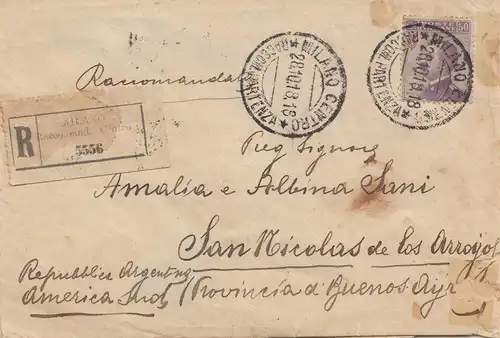 50
MILANO CENTRO
28.10.18.18
RACCOM. PARTENZA
MILANO
28.10.18.18
RACCOM. PARTENZA
Raccomandata
R
MILANO
5556
Preg Signore
Amalia e Albina Sani
San Nicolas de los Arroyos
Repubblica Argentina
America Sud / Provincia d Buenos Ayr